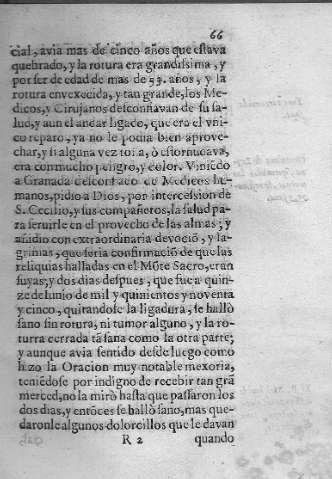 66
cial, avia mas de cinco años que estava
quebrado, y la rotura era grandissima, y
por ser de edad de mas de 59. años, y la
rotura envexecida, y tan grande, los Me-
dicos, y Cirujanos desconfiavan de su sa-
lud, y aun el andar ligado, que era el vni-
co reparo, ya no le podia bien aprove-
char, y si alguna vez tosia, ò estornudava,
era con mucho peligro, y dolor. Viniẽdo
a Granada desconfiado de Medicos hu-
manos, pidio a Dios, por intercession de
S. Cecilio, y sus compañeros, la salud pa-
ra servirle en el provecho de las almas; y
añidio con extraordinaria devociõ, y la-
grimas, que seria confirmaciõ de que las
reliquias halladas en el Mõte Sacro, eran
suyas; y dos dias despues, que fue a quin-
ze de Iunio de mil y quinientos y noventa
y cinco, quitandose la ligadura, se hallò
sano sin rotura, ni tumor alguno, y la ro-
turra cerrada tã sana como la otra parte;
y aunque avia sentido desde luego como
hizo la Oracion muy notable mexoria,
teniẽdose por indigno de recebir tan grã
merced, no la mirò hasta que passaron los
dos dias, y entõces se hallò sano, mas que-
daronle algunos dolorcillos que le davan
R 2 quando